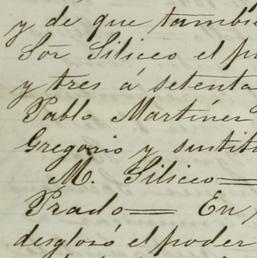 y de que tambie
Sor Siliceo el p
y tres á setenta
Pablo Martínez
Gregorio y sustit
M. Siliceo=
Prado= En
desglosó el poder